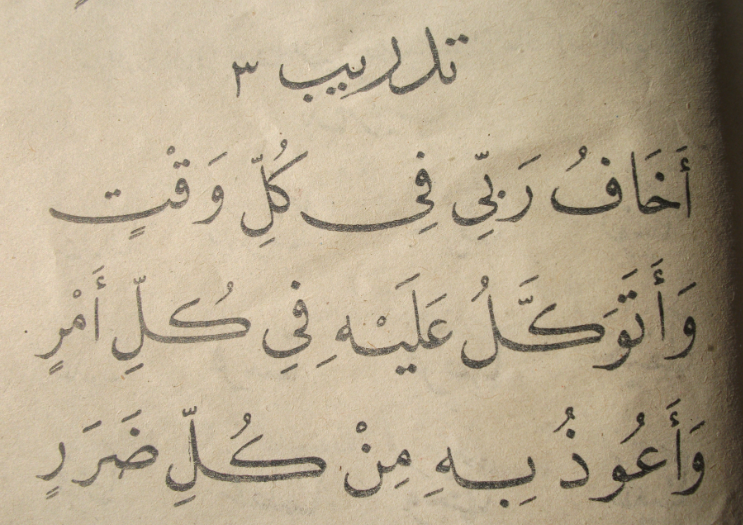 تدريب ٣
أَخَافُ رَبِّي فِي كُلِّ وَقْتٍ
وَأَتَوَكَّلُ عَلَيْهِ فِي كُلِّ أَمْرٍ
وَأَعُوذُ بِهِ مِنْ كُلِّ ضَرَرٍ